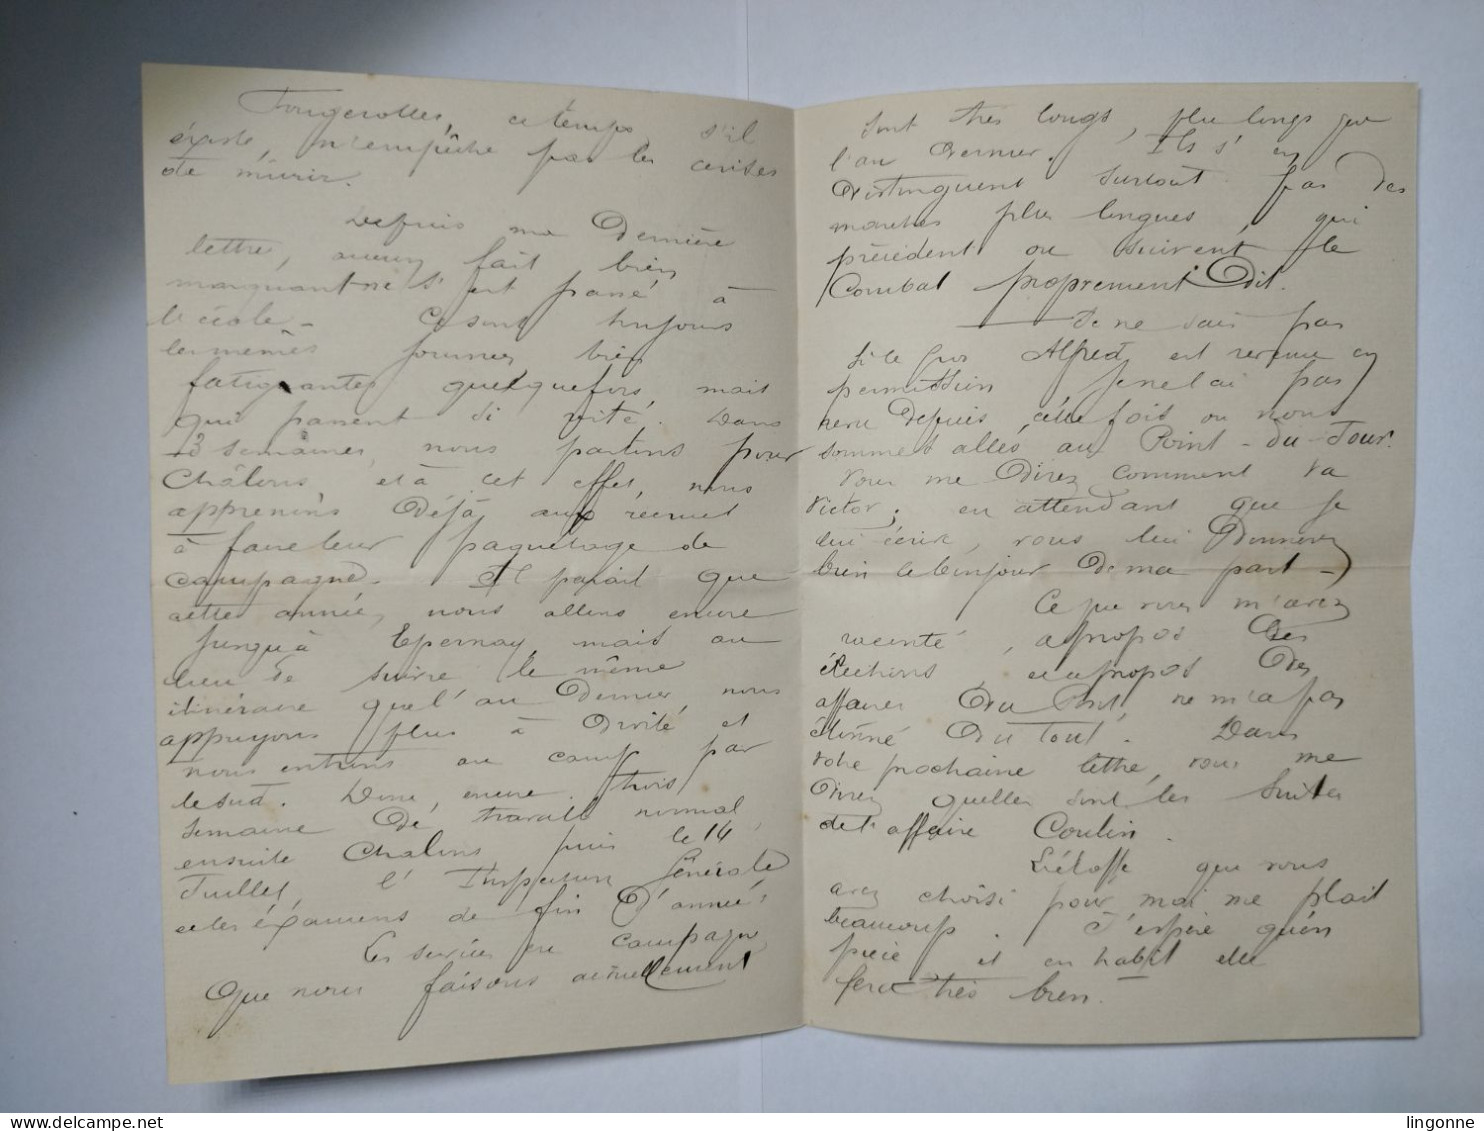 Fougerolles, ce temps, s'il
éxiste, n'empêche pas les cerises
de mûrir.
Depuis ma dernière
lettre, aucun fait bien
marquant ne s'est passé à
l'école. Ce sont toujours
les mêmes journées bien
fatigantes quelquefois, mais
qui passent si vite. Dans
3 semaines, nous partons pour
Châlons, et à cet effet, nous
apprenons déjà aux recrues
à faire leur paquetage de
campagne. Il parait que
cette année, nous allons encore
jusqu'à Epernay, mais au
lieu de suivre le même
itinéraire que l'an dernier, nous
appuyons plus à droite et
nous entrons au camp par
le sud. Donc, encore trois
semaine de travail normal,
ensuite Chalons, puis le 14
Juillet, l'Inspection Générale
et les éxamens de fin d'année.
Les services en campagne
que nous faisons actuellement
sont très longs, plus longs que
l'an dernier. Ils s'en
distinguent surtout par des
marches plus longues, qui
précèdent ou suivent le
Combat proprement dit.
Je ne sais pas
si le gros Alfred est revenu en
permission je ne l'ai pas
revu depuis cette fois ou nous
sommes allés au Point-du-Jour.
Vous me direz comment va
Victor; en attendant que je
lui écrive, vous lui donnerez
bien le bonjour de ma part -
Ce que vous m'avez
raconté, apropos des
élections, et apropos des
affaires du Port, ne m'a pas
étonné du tout. Dans
votre prochaine lettre, vous me
direz quelles sont les suites
de l'affaire Coulin.
L'étoffe que vous
avez choisi pour moi me plait
beaucoup. J'espère qu'en
pièce et en habit elle
fera très bien.
lingonne